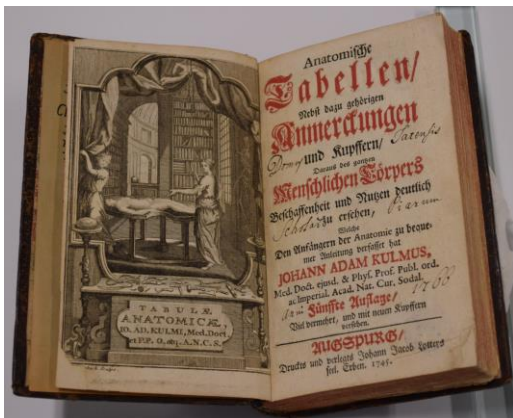 TABULÆ
ANATOMICÆ,
IO. AD. KULMI, Med. Doct.
et P.P.O. adj. A.N.C.S.
Anatomische
Tabellen/
Nebst dazu gehörigen
Anmerckungen
und Kupffern/
Daraus des gantzen
Menschlichen Cörpers
Beschaffenheit und Nutzen deutlich
zu ersehen,
Welche
Den Anfängern der Anatomie zu beque-
mer Anleitung verfasset hat
JOHANN ADAM KULMUS,
Med. Doct. ejusd. & Phys. Prof. Publ. ord.
ac Imperial. Acad. Nat. Cur. Sodal.
Fünffte Auflage,
Viel vermehrt, und mit neuen Kupffern
versehen.
AUGSPURG/
Druckts und verlegts Johann Jacob Lotters
seel. Erben. 1745.